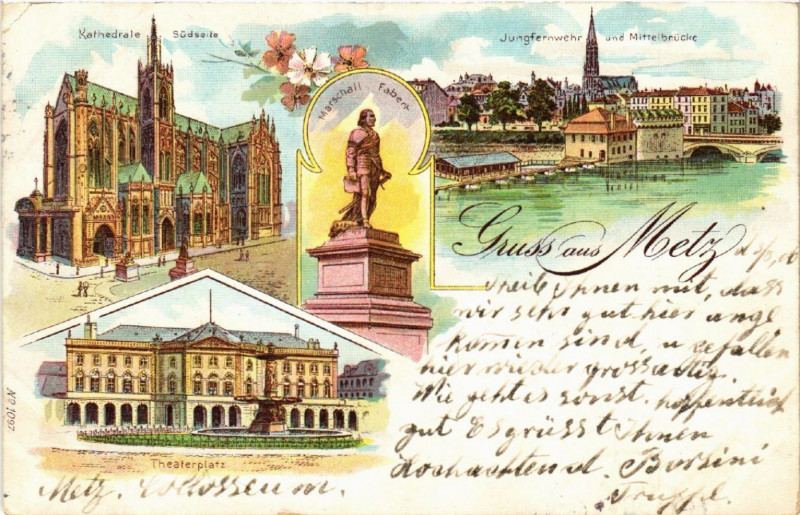 Kathedrale Südseite
Jungfernwehr und Mittelbrücke
Marschall Fabert
Gruss aus Metz
Theile Ihnen mit, dass
wir sehr gut hier ange
komen sind, u gefallen
hier wieder grossartig.
Wie geht es sonst. hoffentlich
gut Es grüsst Ihnen
Hochachtend. Borsini
Truppe.
Theaterplatz
Metz. Collosseum.
No 1097